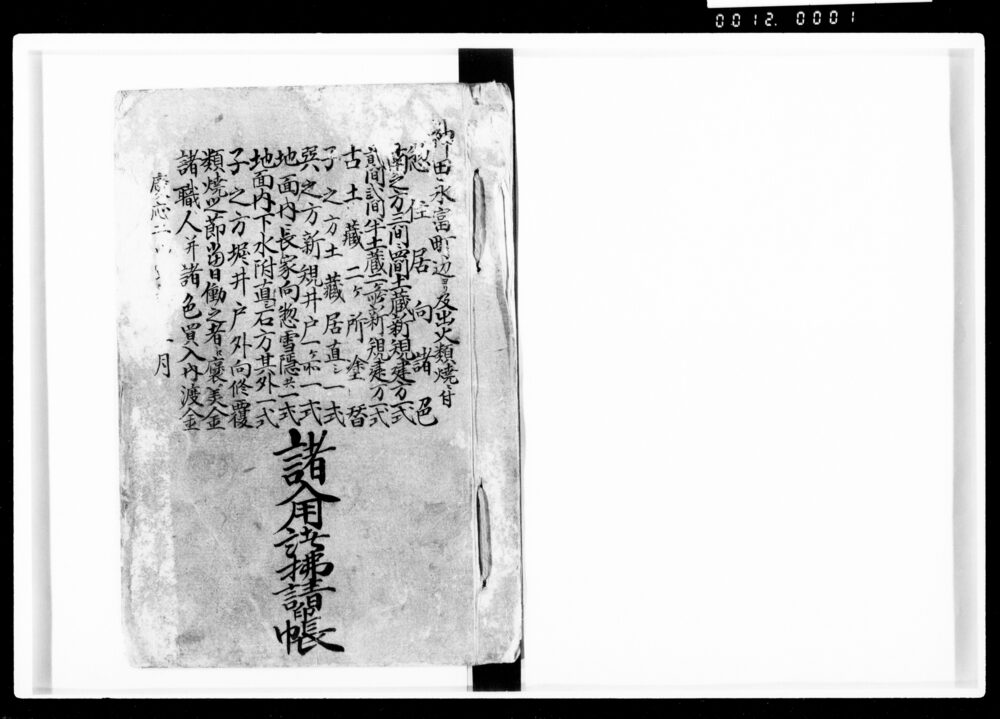 0012. 0001
神田永富町辺ゟ及出火類焼ニ付
惣住居向諸色
南之方三間四間土蔵新規建方一式
貳間弐間半土蔵新規建方一式
古土蔵二ヶ所塗替
子之方土蔵居直シ一式
巽之方新規井戸一ヶ所一式
地面内長家向惣雪隠共一式
地面内下水附直シ石方其外一式
子之方堀井戸外向修覆
類焼之節当日働之者江褒美金
諸職人并諸色買入内渡金
慶応二 月
諸入用諸拂請印帳